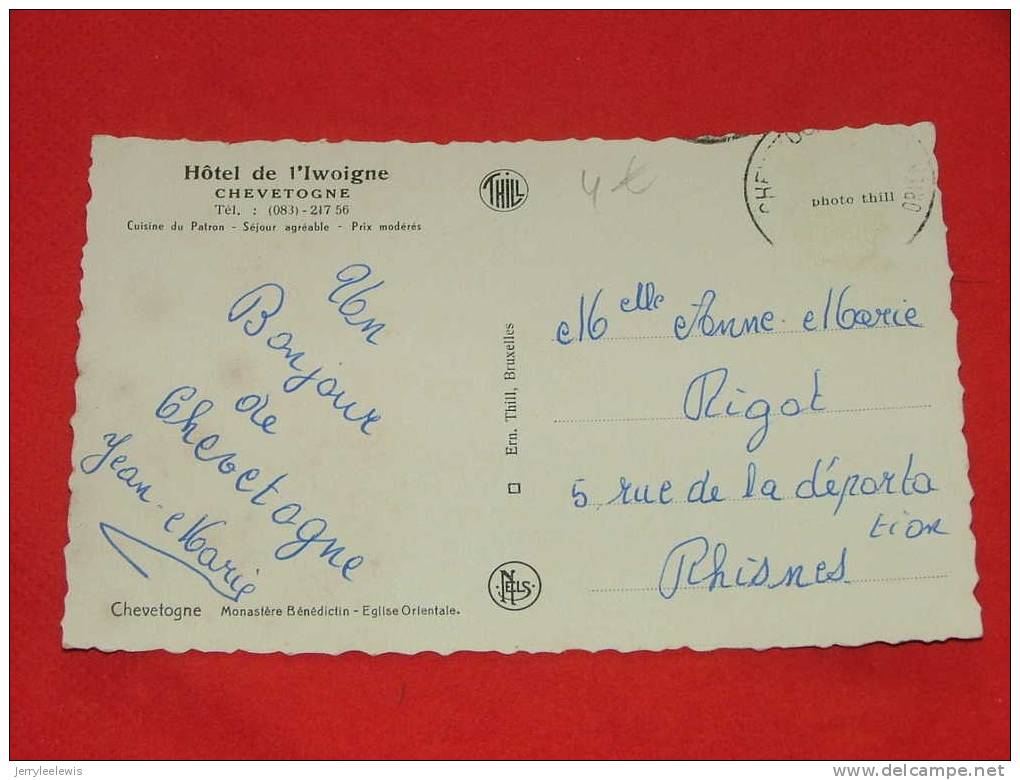 Hôtel de l'Iwoigne
CHEVETOGNE
Tél. : (083) - 217 56
Cuisine du Patron - Séjour agréable - Prix modérés
THILL
4 €
photo thill
Un
Bonjour
de
Chevetogne
Jean-Marie
Ern. Thill, Bruxelles
Melle Anne-Marie
Rigot
5, rue de la déporta
tion
Rhisnes
NELS
Chevetogne Monastère Bénédictin - Eglise Orientale.
jerryleelewis
delcampe.net